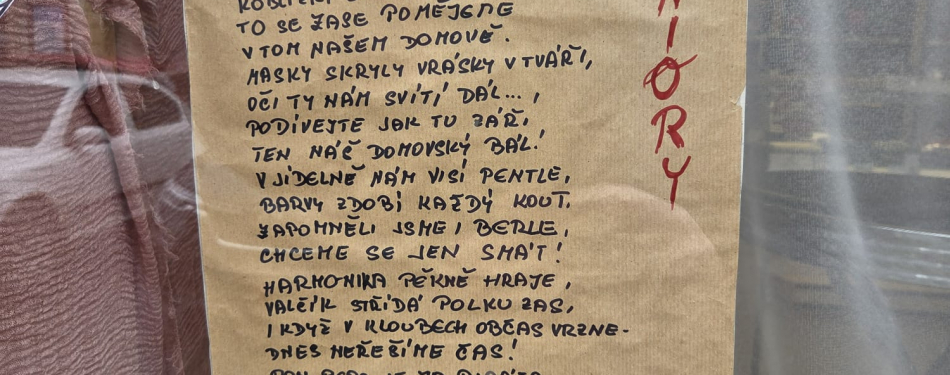 TO SE ZASE POMĚJEME
V TOM NAŠEM DOMOVĚ.
MASKY SKRYLY VRÁSKY V TVÁŘI,
OČI TY NÁM SVÍTÍ DÁL...,
PODÍVEJTE JAK TU ZÁŘÍ,
TEN NÁŠ DOMOVSKÝ BÁL!
V JÍDELNĚ NÁM VISÍ PENTLE,
BARVY ZDOBÍ KAŽDÝ KOUT.
ZAPOMNĚLI JSME I BERLE,
CHCEME SE JEN SMÁT!
HARMONIKA PĚKNĚ HRAJE,
VALČÍK STŘÍDÁ POLKU ZAS,
I KDYŽ V KLOUBECH OBČAS VRZNE-
DNES NEŘEŠÍME ČAS!
IORY